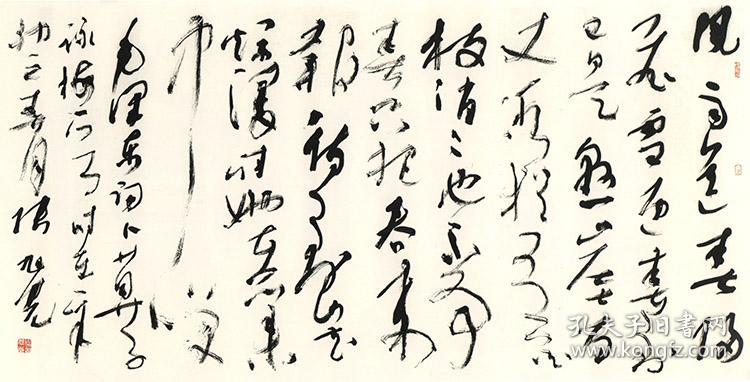 风雨送春归
飞雪迎春到
已是悬崖百
丈冰犹有花
枝俏〻也不争
春只把春来
报待到山花
烂漫时她在丛
中笑
毛泽东词卜算子
咏梅 时在
春月 张旭光
孔夫子旧书网
www.kongfz.com